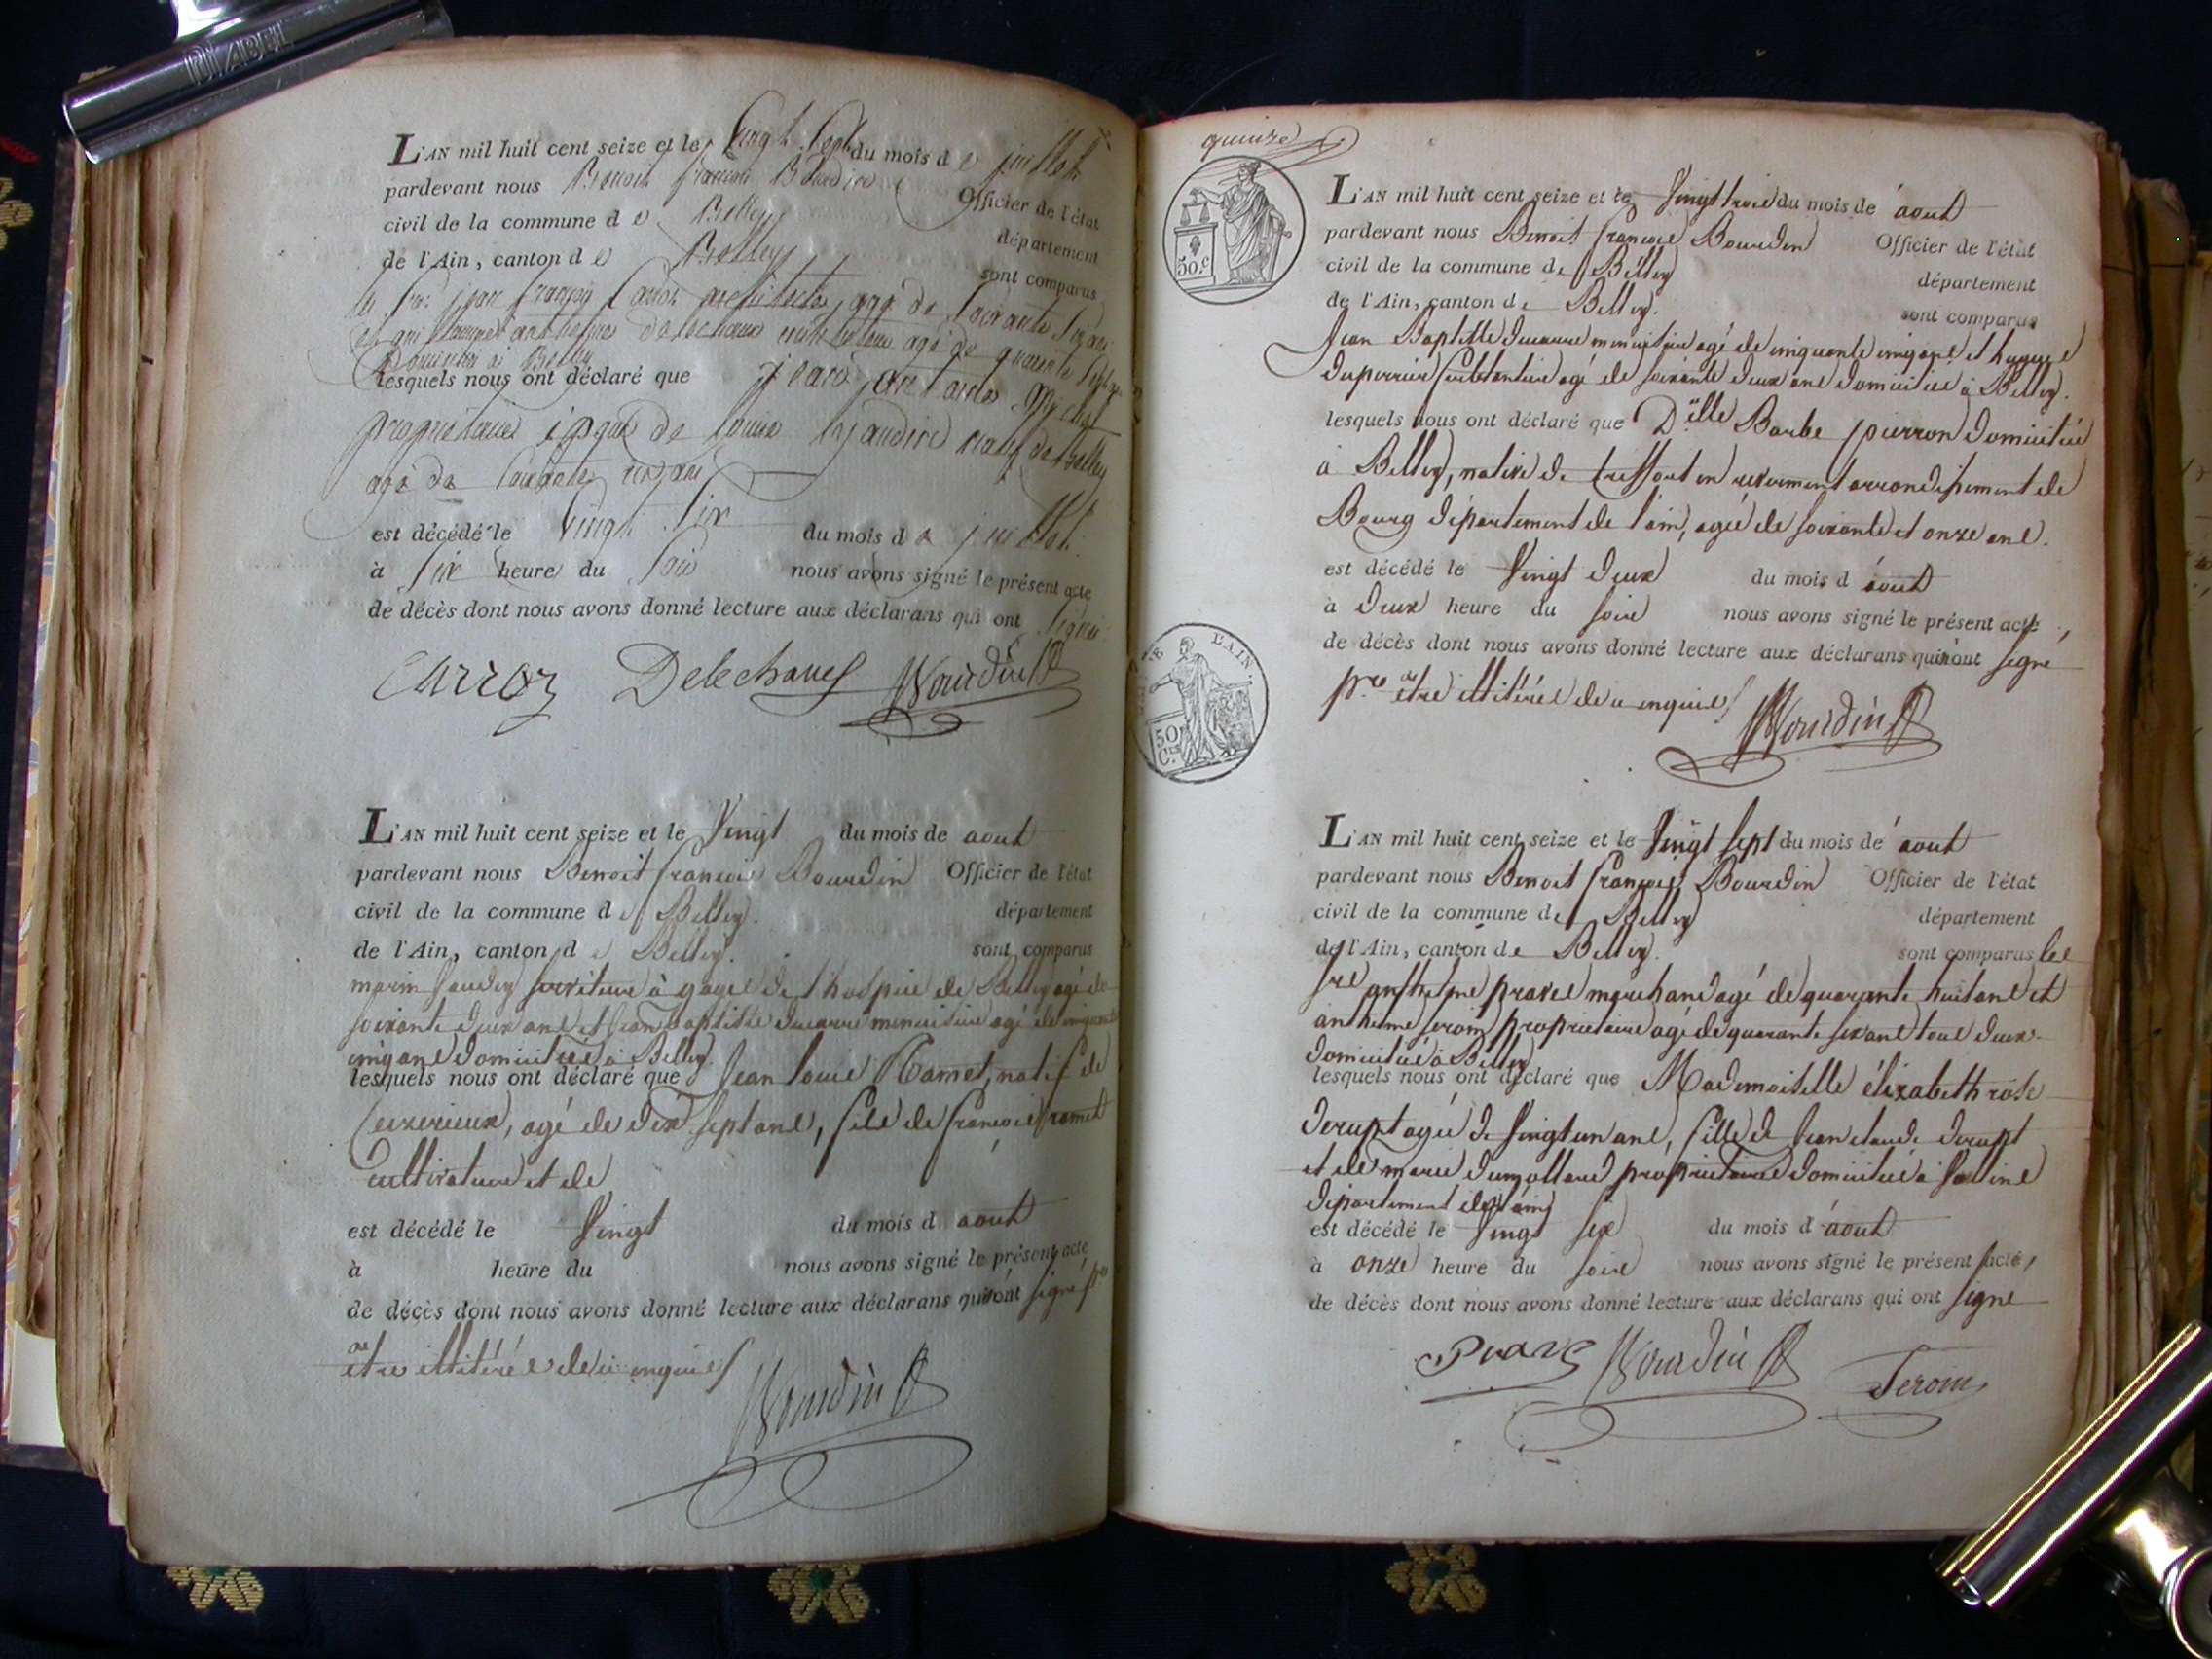 DIABEL
L'AN mil huit cent seize et le Vingt Sept du mois de juillet
pardevant nous Benoit françois Bourdin Officier de l'état
civil de la commune de Belley département
de l'Ain, canton de Belley sont comparus
le Sr. jean françois Carroz architecte, agé de Soixante
et anthelme Delechaux agé de quarante Sept
Domiciliés à Belley
lesquels nous ont déclaré que
propriétaire époux de Louise natif de Belley
agé de Soixante ans
est décédé le Vingt Six du mois de juillet
à Six heure du Soir nous avons signé le présent acte
de décès dont nous avons donné lecture aux déclarans qui ont Signé
Carroz Delechaux Bourdin
L'AN mil huit cent seize et le Vingt du mois de aout
pardevant nous Benoit françois Bourdin Officier de l'état
civil de la commune de Belley. département
de l'Ain, canton de Belley. sont comparus
marin serviteur à gages de l'hospice de Belley agé de
soixante deux ans et Jean Baptiste ducarre menuisier agé de cinquante
cinq ans domiciliés à Belley.
lesquels nous ont déclaré que Jean Louis Ramet, natif de
Ceizerieux, agé de dix sept ans, fils de françois ramet
cultivateur et de
est décédé le Vingt du mois d aout
à heure du nous avons signé le présent acte
de décès dont nous avons donné lecture aux déclarans qui ont signé pr
être illitérés de ce enquis
Bourdin
quinze
50.c
L'AN mil huit cent seize et le Vingt trois du mois de aout
pardevant nous Benoit françois Bourdin Officier de l'état
civil de la commune de Belley département
de l'Ain, canton de Belley. sont comparus
Jean Baptiste ducarre menuisier agé de cinquante cinq ans et hugues
duperrier agé de soixante deux ans domiciliés à Belley.
lesquels nous ont déclaré que Dlle Barbe pierron domiciliée
à Belley, native de treffort en revermont arrondissement de
Bourg département de l'ain, agée de soixante et onze ans.
est décédé le Vingt deux du mois d aout
à deux heure du soir nous avons signé le présent acte,
de décès dont nous avons donné lecture aux déclarans qui ont signé
pr être illitérés de ce enquis
Bourdin
L'AIN.
50 C.es
L'AN mil huit cent seize et le Vingt sept du mois de aout
pardevant nous Benoit françois Bourdin Officier de l'état
civil de la commune de Belley département
de l'Ain, canton de Belley. sont comparus les
srs anthelme pravel marchand agé de quarante huit ans et
anthelme seroin propriétaire agé de quarante six ans tous deux
domiciliés à Belley
lesquels nous ont déclaré que Mademoiselle élizabeth rose
derupt agée de Vingt un ans, fille de Jean claude derupt
et de marie dumollard propriétaires domiciliés à
département de l'ain
est décédé le Vingt six du mois d aout
à onze heure du soir nous avons signé le présent acte,
de décès dont nous avons donné lecture aux déclarans qui ont signé
Bourdin Seroin